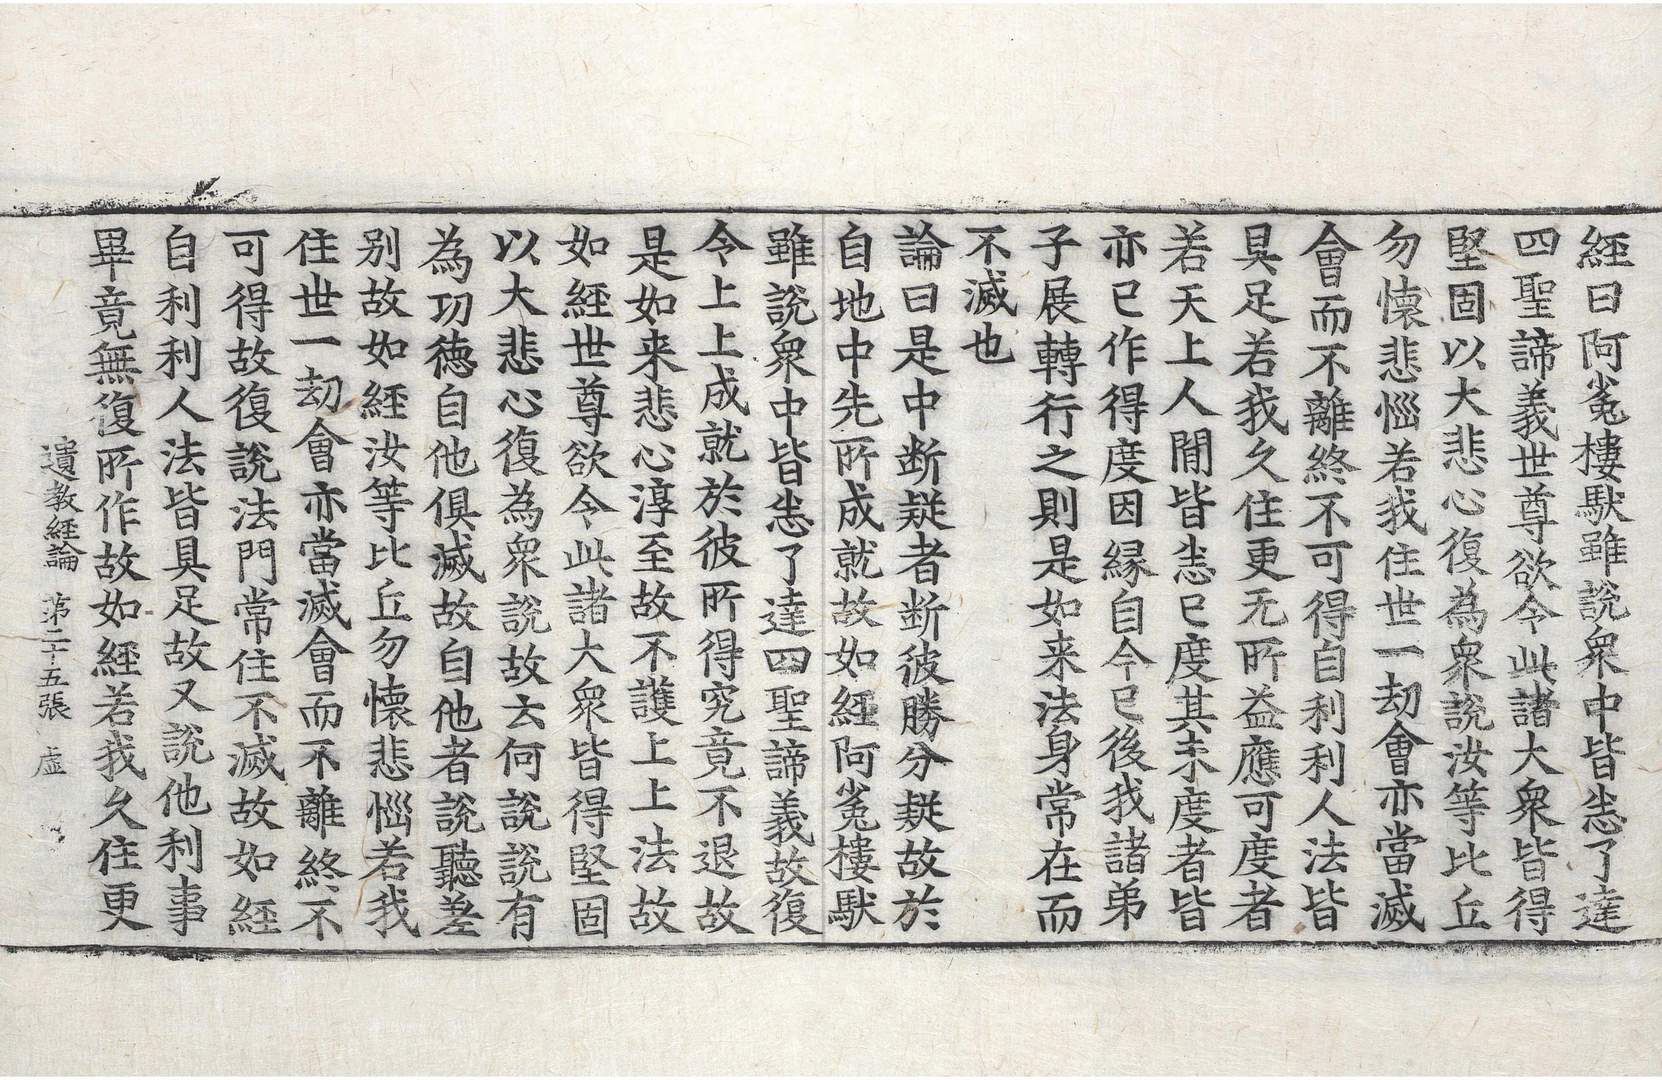 經曰阿㝹樓馱雖說衆中皆恙了達
四聖諦義世尊欲令此諸大衆皆得
堅固以大悲心復為衆說汝等比丘
勿懷悲惱若我住世一劫會亦當滅
會而不離終不可得自利利人法皆
具足若我久住更无所益應可度者
若天上人間皆恙已度其未度者皆
亦已作得度因緣自今已後我諸弟
子展轉行之則是如来法身常在而
不滅也
論曰是中断疑者断彼勝分疑故於
自地中先所成就故如經阿㝹樓馱
雖說衆中皆恙了達四聖諦義故復
令上上成就於彼所得究竟不退故
是如来悲心淳至故不護上上法故
如經世尊欲令此諸大衆皆得堅固
以大悲心復為衆說故云何說說有
為功德自他俱滅故自他者說聽差
别故如經汝等比丘勿懷悲惱若我
住世一劫會亦當滅會而不離終不
可得故復說法門常住不滅故如經
自利利人法皆具足故又說他利事
畢竟無復所作故如經若我久住更
遺教經論 第二十五張 虛